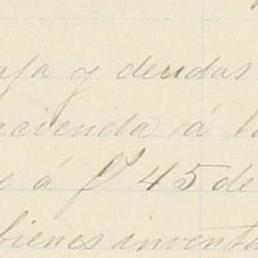 aja y deudas
acienda á la
e á $ 45 de
bienes inventa